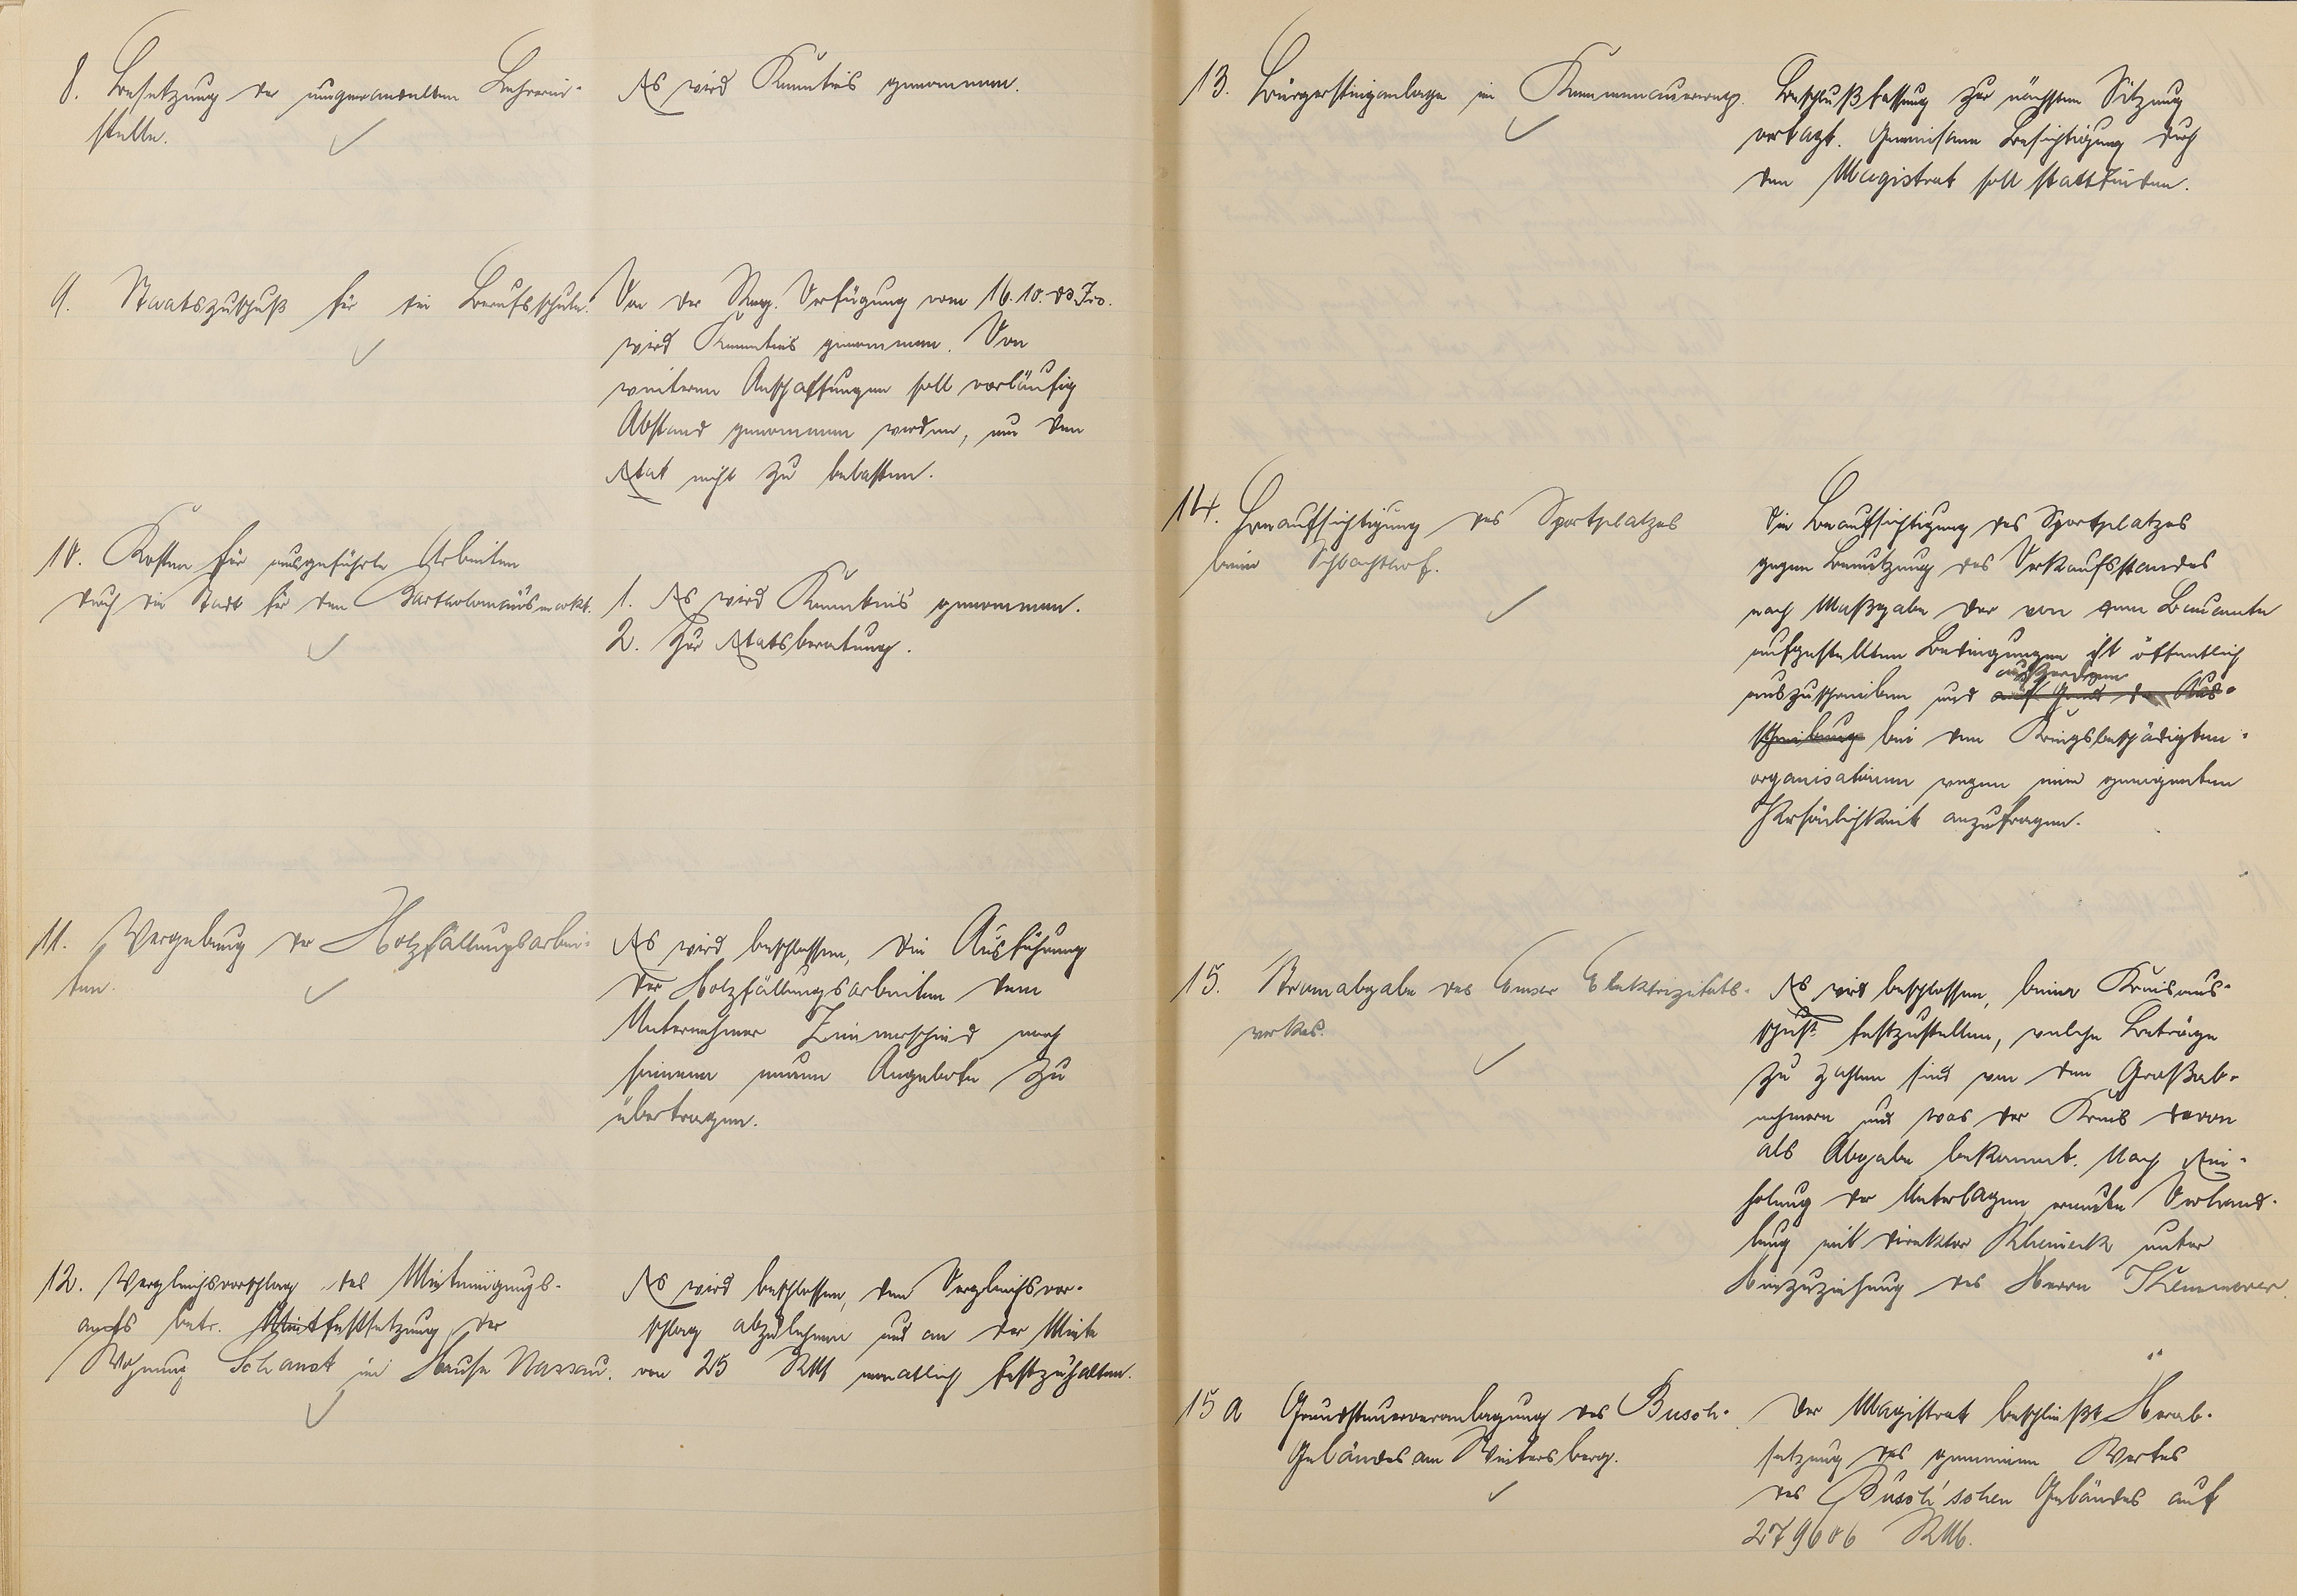 8. Besetzung der umgewandelten Lehrerin-
stelle.
Es wird Kenntnis genommen.
9. Staatszuschuß für die Berufsschule.
Von der Reg. Verfügung vom 16.10. ds. Jrs.
wird Kenntnis genommen. Von
weiteren Anschaffungen soll vorläufig
Abstand genommen werden, um den
Etat nicht zu belasten.
10. Kosten für ausgeführte Arbeiten
durch die Stadt für den Bartholomäusmarkt.
1. Es wird Kenntnis genommen.
2. Zur Etatsberatung.
11. Vergebung der Holzfällungsarbei-
ten.
Es wird beschlossen, die Ausführung
der Holzfällungsarbeiten dem
Unternehmer Zimmerschied nach
seinem neuen Angebote zu
übertragen.
12. Vergleichsvorschlag des Mieteinigungs-
amts betr. Mietfestsetzung der
Wohnung Schanst im Hause Nassau.
Es wird beschlossen, den Vergleichsvor-
schlag abzulehnen und an der Miete
von 25 RM monatlich festzuhalten.
13. Bürgersteiganlage im Kemmenauerweg.
Beschlußfassung zur nächsten Sitzung
vertagt. Gemeinsame Besichtigung durch
den Magistrat soll stattfinden.
14. Beaufsichtigung des Sportplatzes
beim Schlachthof.
Die Beaufsichtigung des Sportplatzes
gegen Benutzung des Verkaufsstandes
nach Maßgabe der von dem Bauamte
aufgestellten Bedingungen ist öffentlich
außerdem
auszuschreiben und auf Grund der Aus-
schreibung bei den Kriegsbeschädigten-
organisationen wegen einer geeigneten
Persönlichkeit anzufragen.
15. Stromabgabe des Emser Elektrizitäts-
werkes.
Es wird beschlossen, beim Kreisaus-
schuß festzustellen, welche Beträge
zu zahlen sind von den Großab-
nehmern und was der Kreis davon
als Abgabe bekommt. Nach Ein-
holung der Unterlagen erneute Verhand-
lung mit Direktor unter
Hinzuziehung des Herrn Themmerer.
15 a Grundsteuerveranlagung des Busch-
Gebäudes am Wintersberg.
Der Magistrat beschließt Herab-
setzung des gemeinen Wertes
des Busch'schen Gebäudes auf
279606 RM.